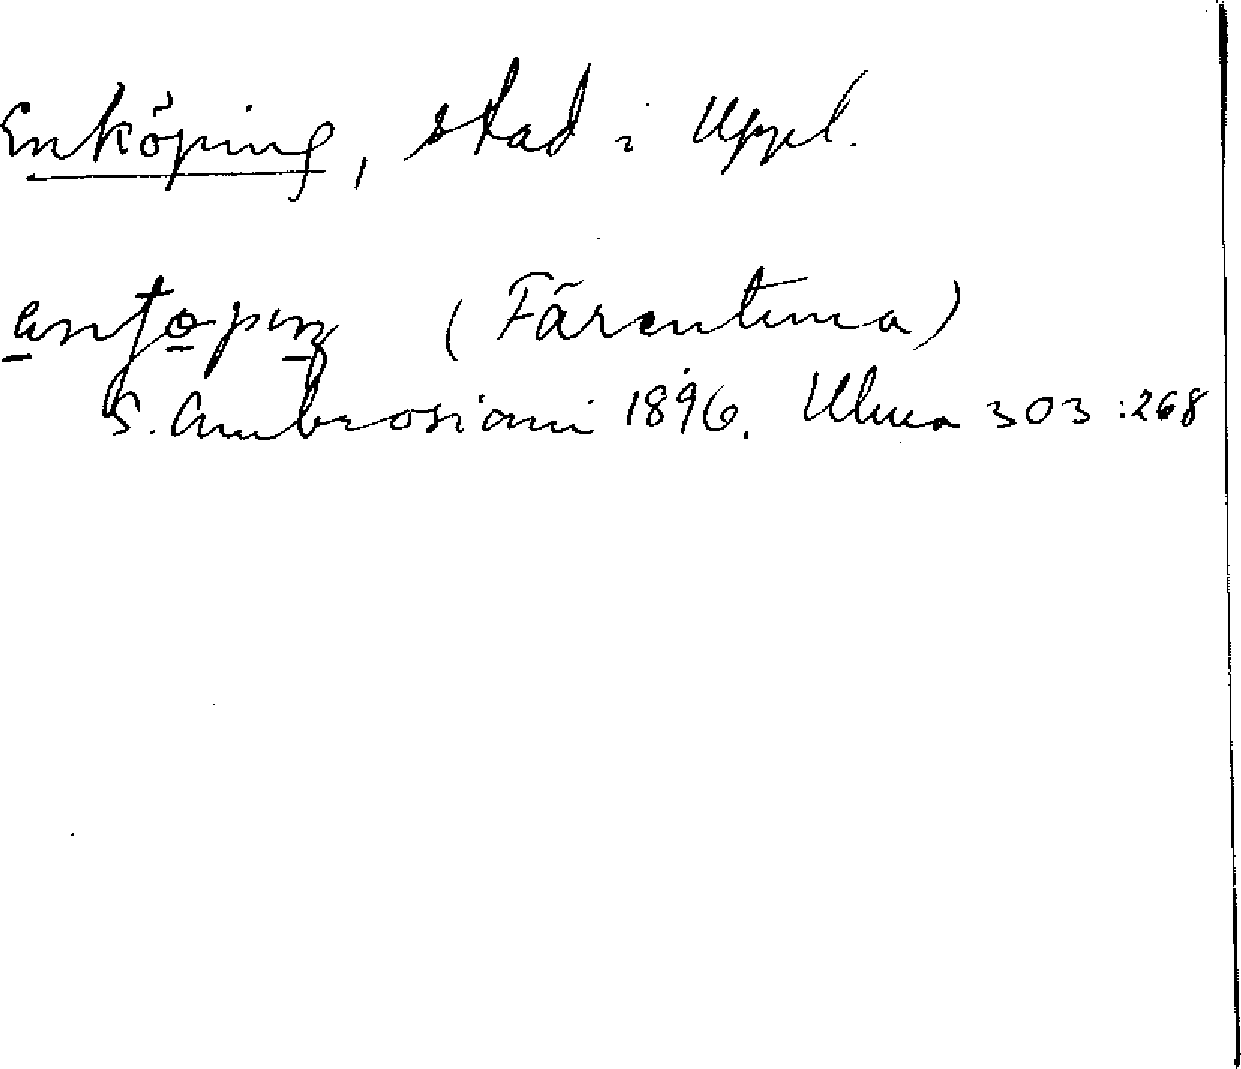 Enköping, stad i Uppl.
(Färentuna)
S. Ambrosiani 1896. Ulma 303:268